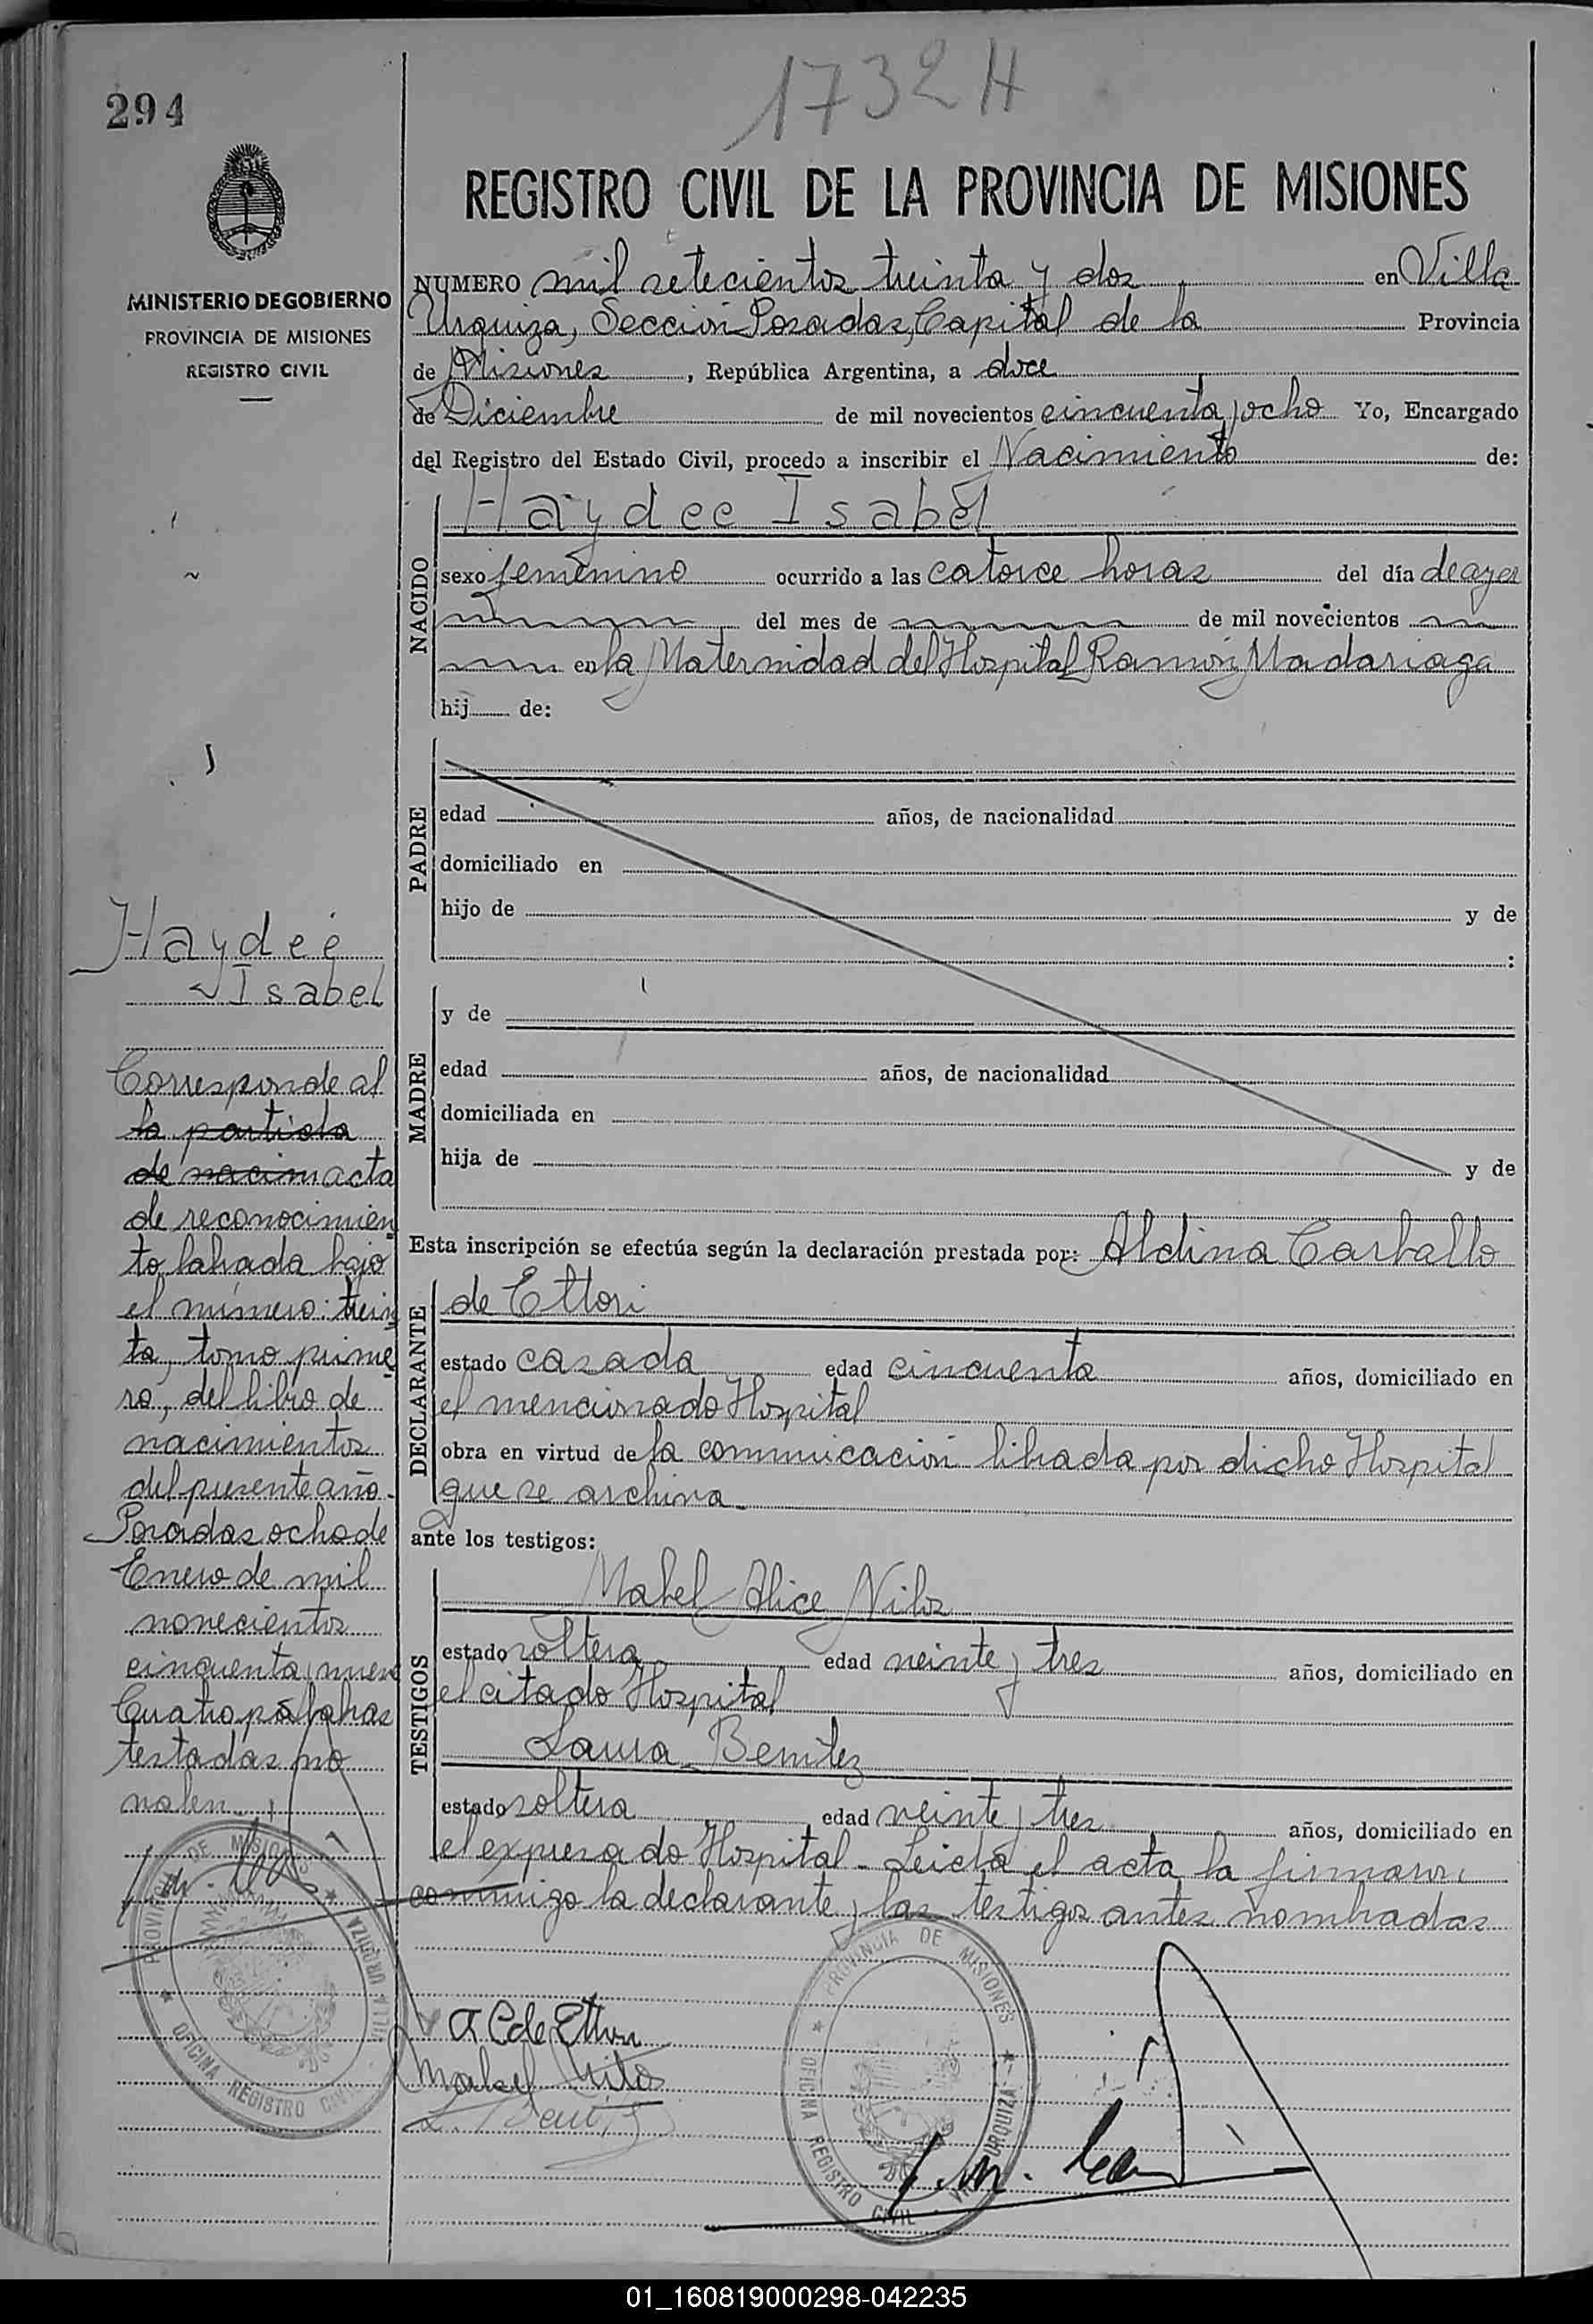 294
1732 H
MINISTERIO DE GOBIERNO
PROVINCIA DE MISIONES
REGISTRO CIVIL
REGISTRO CIVIL DE LA PROVINCIA DE MISIONES
NUMERO mil setecientos treinta y dos en Villa
Urquiza, Sección Posadas, Capital de la Provincia
de Misiones, República Argentina, a doce
de Diciembre de mil novecientos cincuenta y ocho Yo, Encargado
del Registro del Estado Civil, procedo a inscribir el Nacimiento de:
NACIDO
Haydee Isabel
sexo femenino ocurrido a las catorce horas del día de ayer
del mes de de mil novecientos
en la Maternidad del Hospital Ramón Madariaga
hij de:
PADRE
edad años, de nacionalidad
domiciliado en
hijo de y de
:
MADRE
y de
edad años, de nacionalidad
domiciliada en
hija de y de
Esta inscripción se efectúa según la declaración prestada por: Aldina Carballo
DECLARANTE
de Ettori
estado casada edad cincuenta años, domiciliado en
el mencionado Hospital
obra en virtud de la comunicación librada por dicho Hospital
que se archiva
ante los testigos:
TESTIGOS
Mabel Alice Nilos
estado soltera edad veinte y tres años, domiciliado en
el citado Hospital
Laura Benitez
estado soltera edad veinte y tres años, domiciliado en
el expresado Hospital - Leida el acta la firmaron
conmigo la declarante y las testigos antes nombradas
A C de Ettori
Mabel Nilos
L. Benitez
PROVINCIA DE MISIONES
OFICINA REGISTRO CIVIL
VILLA URQUIZA
Haydeé
Isabel
Corresponde al
la partida
de nacim acta
de reconocimien
to labrada bajo
el número: trein
ta, tomo prime
ro, del libro de
nacimientos
del presente año.
Posadas ocho de
Enero de mil
novecientos
cincuenta y nueve
Cuatro palabras
testadas no
valen
PROVINCIA DE MISIONES
OFICINA REGISTRO CIVIL
VILLA URQUIZA
01_160819000298-042235